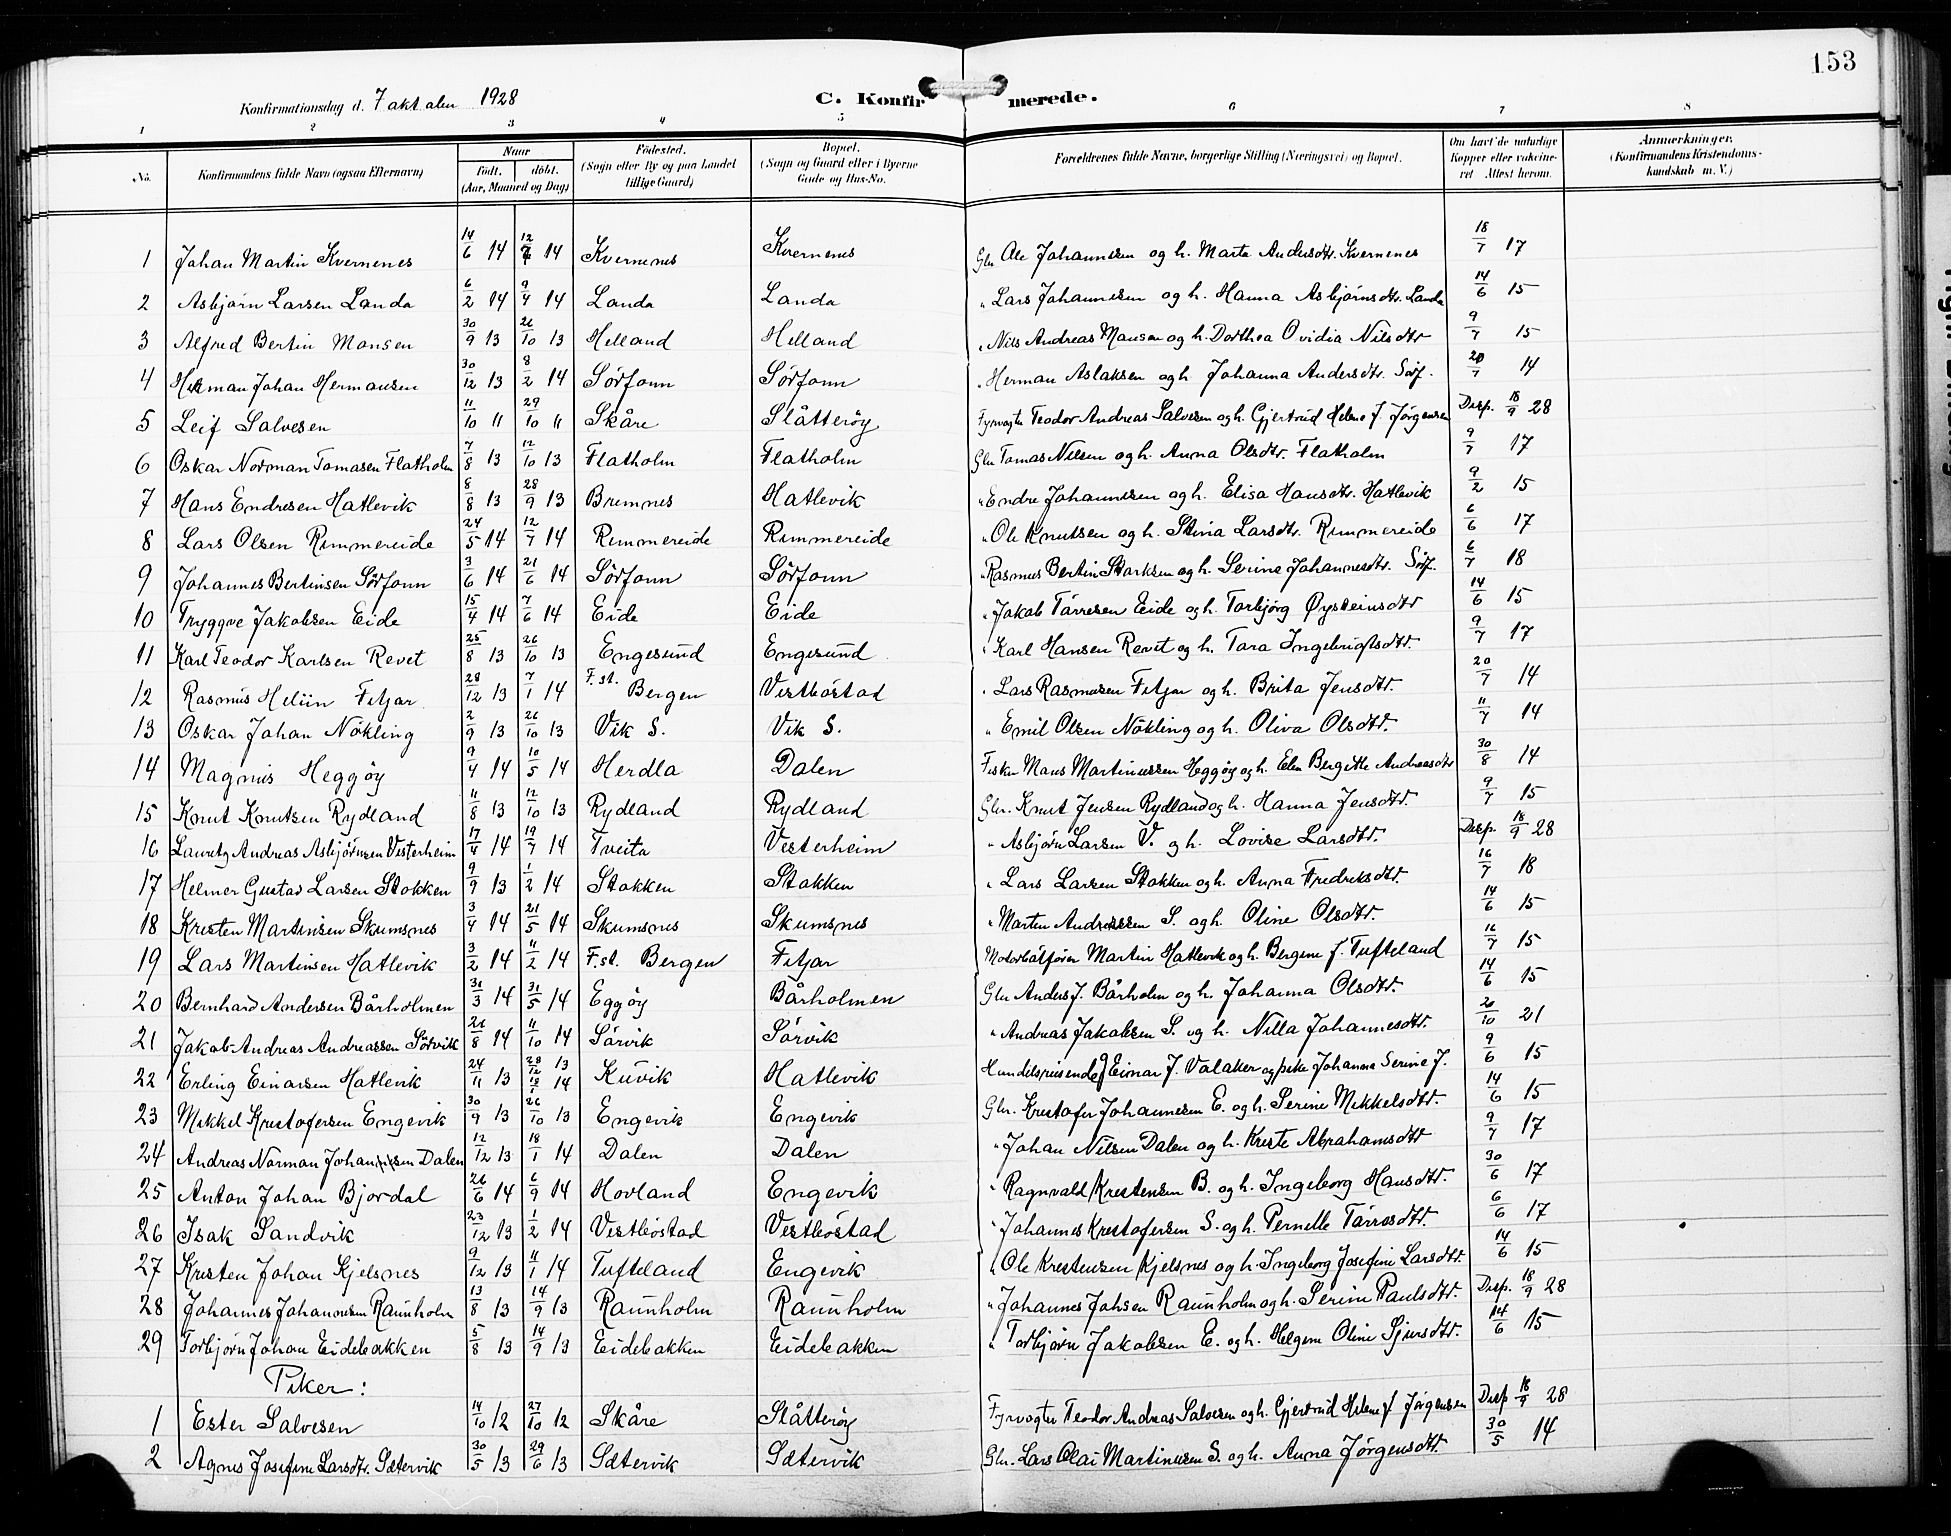 153
Konfirmationsdag d. 7 oktober 1928 C. Konfirmerede.
1 2 3 4 5 6 7 8
No. Konfirmandens fulde Navn (ogsaa Efternavn) Naar født. døbt. (Aar, Maaned og Dag) Fødested. (Sogn eller By og paa Landet tillige Gaard) Bopæl. (Sogn og Gaard eller i Byerne Gade og Hus-No. Forældrenes fulde Navne, borgerlige Stilling (Næringsvei) og Bopæl. Om havt de naturlige Kopper eller vaccineret Attest herom. Anmærkninger. (Konfirmandens Kristendomskundskab m. V.)
1 Johan Martin Kvernenes 14/6 14 12/7 14 Kvernenes Kvernenes Gbr Ole Johannesen og h. Marta Andersdtr. Kvernenes 18/7 17
2 Asbjørn Larsen Landa 6/2 14 9/4 14 Landa Landa " Lars Johannesen og h. Hanna Asbjørnsdtr. Landa 14/6 15
3 Alfred Bertin Monsen 30/9 13 26/10 13 Helland Helland " Nils Andreas Monsen og h. Dorthea Ovidia Nilsdtr 9/7 15
4 Herman Johan Hermansen 30/12 13 8/2 14 Sørfonn Sørfonn " Herman Aslaksen og h. Johanna Andersdtr. Sørf. 20/7 14
5 Leif Salvesen 11/10 11 29/10 11 Skåre Slåtterøy Fyrvogter Teodor Andreas Salvesen og h. Gjertrud Helene f. Jørgensen Disp. 18/9 28
6 Oskar Norman Tomasen Flatholm 7/8 13 12/10 13 Flatholm Flatholm Gbr Tomas Nilsen og h. Anna Olsdtr. Flatholm 9/7 17
7 Hans Endresen Hatlevik 8/8 13 28/9 13 Bremnes Hatlevik " Endre Johannesen og h. Elisa Hansdtr. Hatlevik 9/2 15
8 Lars Olsen Rimmereide 24/5 14 12/7 14 Rimmereide Rimmereide " Ole Knutsen og h. Stina Larsdtr. Rimmereide 6/6 17
9 Johannes Bertinsen Sørfonn 3/6 14 21/6 14 Sørfonn Sørfonn " Rasmus Bertin Storksen og h. Serine Johannesdtr. Sørf. 6/7 18
10 Tryggve Jakobsen Eide 15/4 14 7/6 14 Eide Eide " Jakob Tørresen Eide og h. Torbjørg Øysteinsdtr 14/6 15
11 Karl Teodor Karlsen Revet 25/8 13 26/10 13 Engesund Engesund " Karl Hansen Revet og h. Tora Ingebrigtsdtr. 9/7 17
12 Rasmus Fitjar 28/12 13 7/1 14 F.st. Bergen Vestbøstad " Lars Rasmusen Fitjar og h. Brita Jensdtr. 20/7 14
13 Oskar Johan Nøkling 2/9 13 26/10 13 Vik S. Vik S. " Emil Olsen Nøkling og h. Oliva Olsdtr. 11/7 14
14 Magnus Heggøy 9/4 14 10/5 14 Herdla Dalen Fisker Mons Martinussen Heggøy og h. Elen Bergitte Andreasdtr 30/8 14
15 Knut Knutsen Rydland 11/8 13 12/10 13 Rydland Rydland Gbr. Knut Jensen Rydland og h. Hanna Jensdtr. 9/7 15
16 Lauritz Andreas Asbjørnsen Vesterheim 17/4 14 19/7 14 Tveita Vesterheim " Asbjørn Larsen V. og h. Lovise Larsdtr. Disp. 18/9 28
17 Helmer Gustav Larsen Stokken 9/9 13 1/2 14 Stokken Stokken " Lars Larsen Stokken og h. Anna Fredriksdtr. 16/7 18
18 Kristen Martinsen Skumsnes 3/4 14 21/5 14 Skumsnes Skumsnes " Morten Andreassen S. og h. Oline Olsdtr. 14/6 15
19 Lars Martinsen Hatlevik 3/2 14 11/2 14 F.st. Bergen Fitjar Motorbåtfører Martin Hatlevik og h. Bergine f. Tufteland 16/7 15
20 Bernhard Andersen Bårholmen 31/3 14 31/5 14 Eggøy Bårholmen Gbr Anders J. Bårholm og h. Johanna Olsdtr. 14/6 15
21 Jakob Andreas Andreassen Sørvik 21/8 14 11/10 14 Sørvik Sørvik " Andreas Jakobsen S. og h. Nilla Johannesdtr. 20/10 21
22 Erling Einarsen Hatlevik 24/11 13 28/12 13 18/1 14 Kuvik Hatlevik Handelsreisende Einar J. Valaker og pike Johanna Serine J. 9/6 15
23 Mikkel Kristofersen Engevik 30/9 13 26/10 13 Engevik Engevik Gbr. Kristofer Johannesen E. og h. Serine Mikkelsdtr. 14/6 15
24 Andreas Norman Johansen Dalen 12/12 13 18/1 14 Dalen Dalen " Johan Nilsen Dalen og h. Kriste Abrahamsdtr 9/7 17
25 Anton Johan Bjordal 26/6 14 6/9 14 Hovland Engevik " Ragnvald Kristensen B. og h. Ingeborg Hansdtr. 30/6 17
26 Isak Sandvik 23/12 13 1/2 14 Vestbøstad Vestbøstad " Johannes Kristofersen S. og h. Pernelle Tørresdtr. 6/6 17
27 Kristen Johan Kjelsnes 9/12 13 11/1 14 Tufteland Engevik " Ole Kristensen Kjelsnes og h. Ingeborg Josefine Larsdtr. 14/6 15
28 Johannes Johannesen Raunholm 13/8 13 14/9 13 Raunholm Raunholm " Johannes Johsen Raunholm og h. Serine Paulsdtr. Disp. 18/9 28
29 Torbjørn Johan Eidebakken 5/8 13 14/9 13 Eidebakken Eidebakken " Torbjørn Jakobsen E. og h. Helgine Oline Sjursdtr. 14/6 15
Piker:
1 Ester Salvesen 14/10 12 27/10 12 Skåre Slåtterøy Fyrvogter Teodor Andreas Salvesen og h. Gjertrud Helene f Jørgensen Disp 18/9 28
2 Agnes Josefine Larsdtr. Sætervik 30/5 13 29/6 13 Sætervik Sætervik Gbr. Lars Olai Martinusen S. og h. Anna Jørgensdtr. 30/5 14